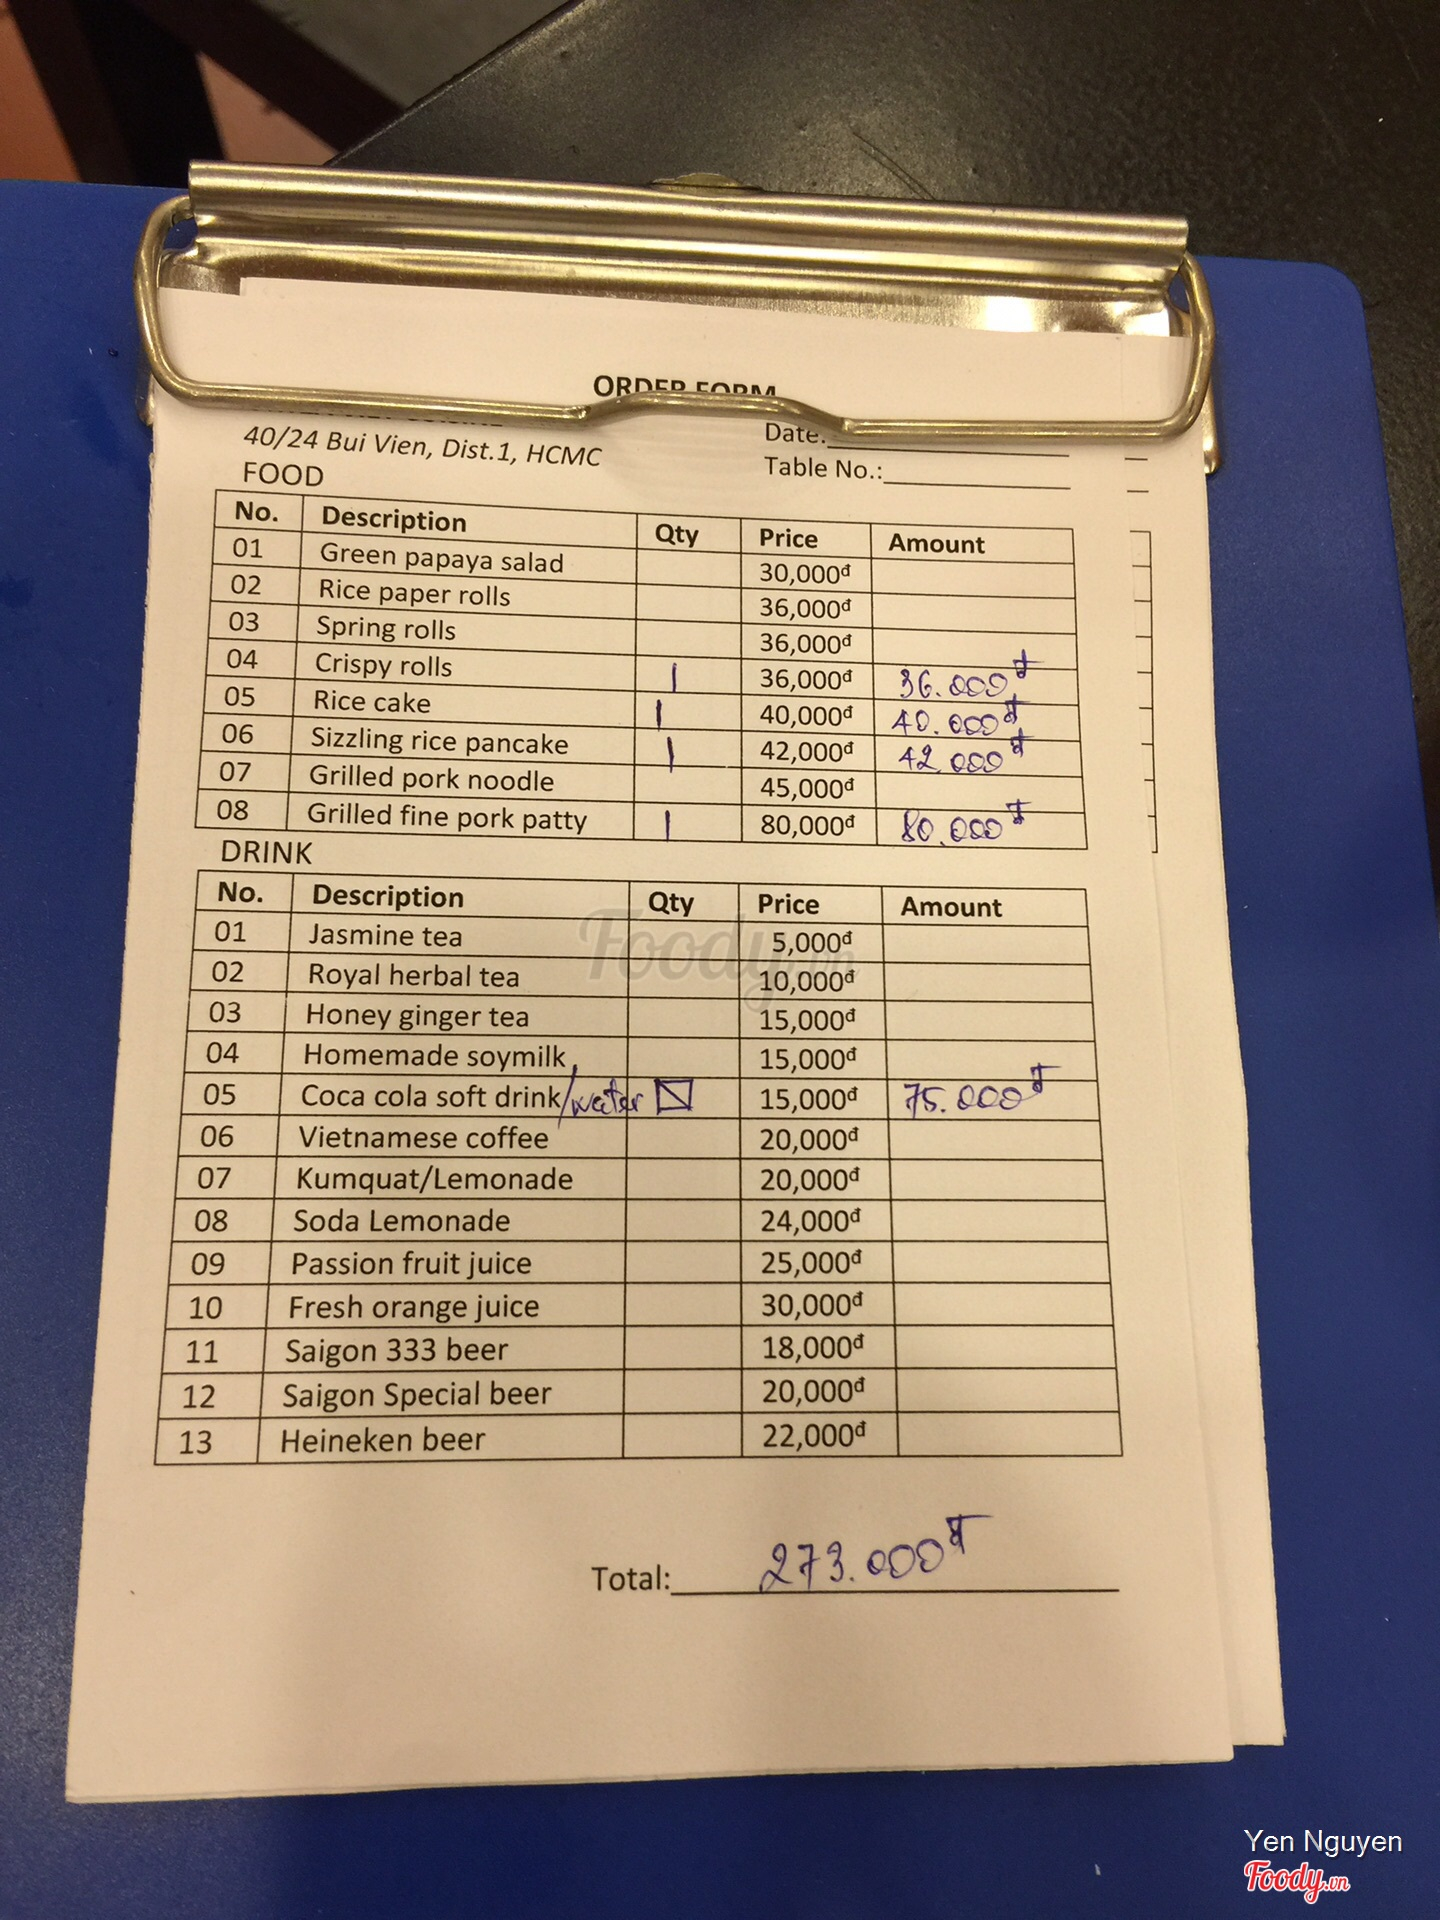 ORDER FORM
40/24 Bui Vien, Dist.1, HCMC
Date:
Table No.:
FOOD
No. Description Qty Price Amount
01 Green papaya salad 30,000đ
02 Rice paper rolls 36,000đ
03 Spring rolls 36,000đ
04 Crispy rolls 1 36,000đ 36.000đ
05 Rice cake 1 40,000đ 40.000đ
06 Sizzling rice pancake 1 42,000đ 42.000đ
07 Grilled pork noodle 45,000đ
08 Grilled fine pork patty 1 80,000đ 80.000đ
DRINK
No. Description Qty Price Amount
01 Jasmine tea 5,000đ
02 Royal herbal tea 10,000đ
03 Honey ginger tea 15,000đ
04 Homemade soymilk 15,000đ
05 Coca cola soft drink/water 15,000đ 75.000đ
06 Vietnamese coffee 20,000đ
07 Kumquat/Lemonade 20,000đ
08 Soda Lemonade 24,000đ
09 Passion fruit juice 25,000đ
10 Fresh orange juice 30,000đ
11 Saigon 333 beer 18,000đ
12 Saigon Special beer 20,000đ
13 Heineken beer 22,000đ
Total: 273.000đ
Foody.vn
Yen Nguyen
Foody.vn